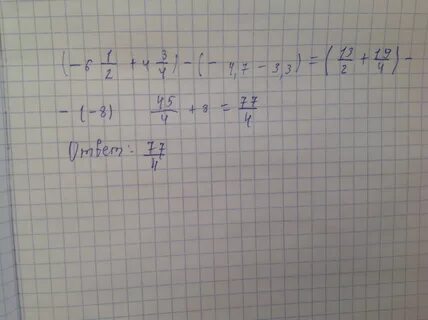 (-6 1/2 + 4 3/4) - (- 4,7 - 3,3) = (13/2 + 19/4) -
- (-8) 45/4 + 8 = 77/4
Ответ: 77/4